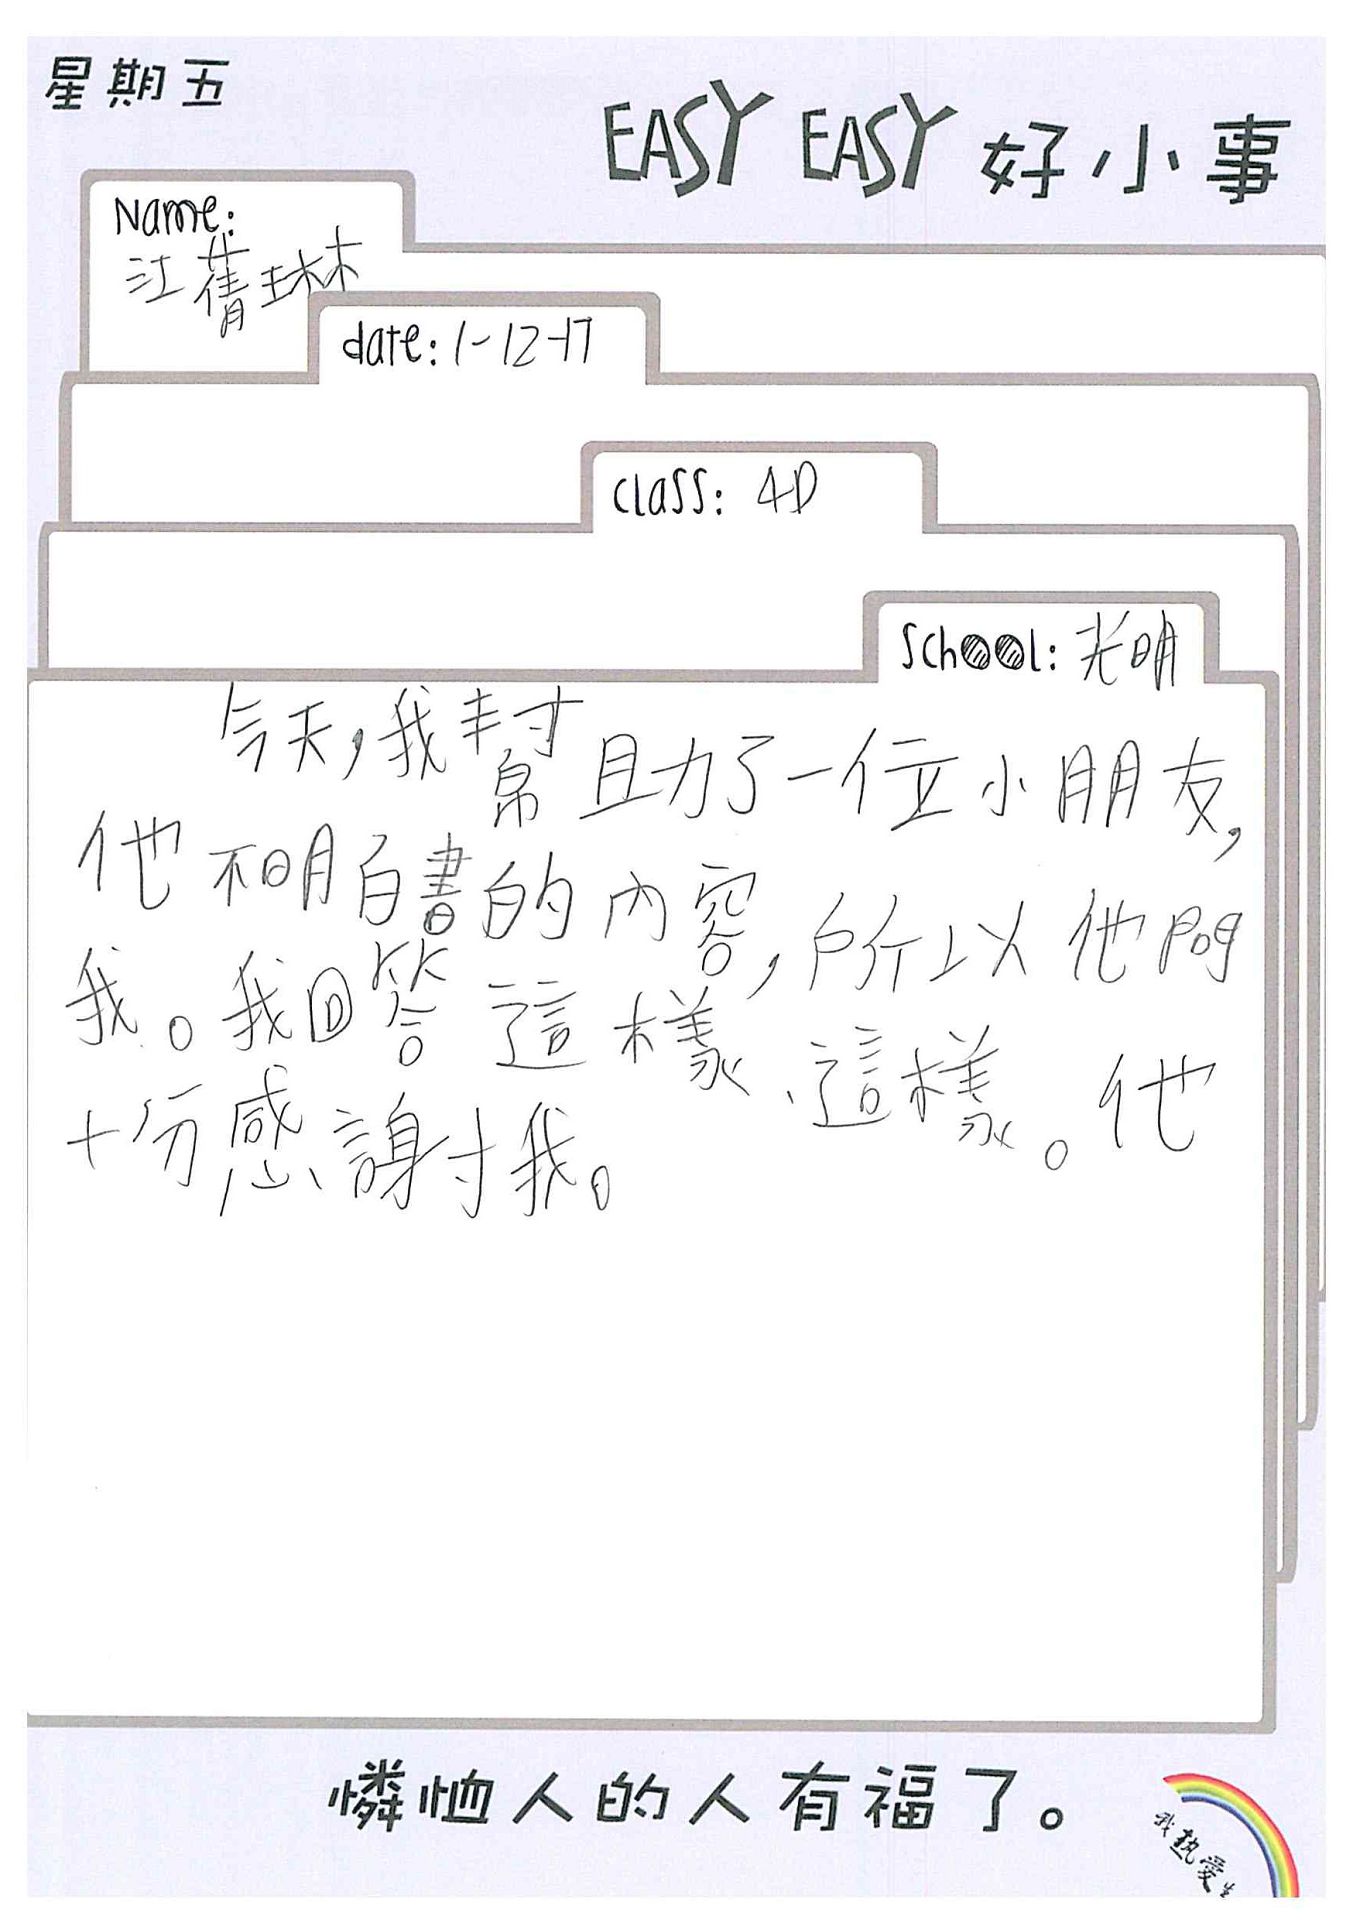 星期五
EASY EASY 好小事
Name:
江蒨琳
date: 1-12-17
class: 4D
School: 光明
今天,我幫助了一位小朋友,
他不明白書的內容,所以他問
我。我回答這樣、這樣。他
十分感謝我。
憐恤人的人有福了。
我熱愛生